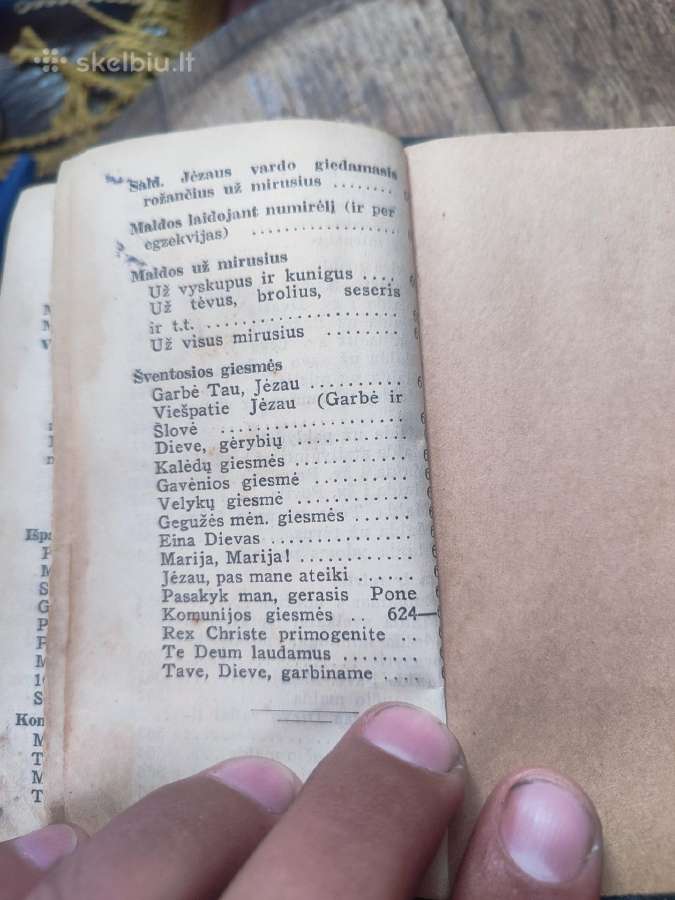 skelbiu.lt
Sald. Jėzaus vardo giedamasis
rožančius už mirusius ........
Maldos laidojant numirėlį (ir per
egzekvijas) ..................
Maldos už mirusius
Už vyskupus ir kunigus .... 6
Už tėvus, brolius, seseris
ir t.t. ...................... 6
Už visus mirusius ......... 6
Šventosios giesmės
Garbė Tau, Jėzau .......... 6
Viešpatie Jėzau (Garbė ir
Šlovė ................... 6
Dieve, gėrybių ............
Kalėdų giesmės ............ 6
Gavėnios giesmė ........... 6
Velykų giesmė ............. 6
Gegužės mėn. giesmės ...... 6
Eina Dievas ............... 6
Marija, Marija! ............ 6
Jėzau, pas mane ateiki ...... 6
Pasakyk man, gerasis Pone 6
Komunijos giesmės .. 624—
Rex Christe primogenite ..
Te Deum laudamus ........
Tave, Dieve, garbiname ....
Išpa
P
M
S
G
P
P
M
S
Kon
M
T
M
T